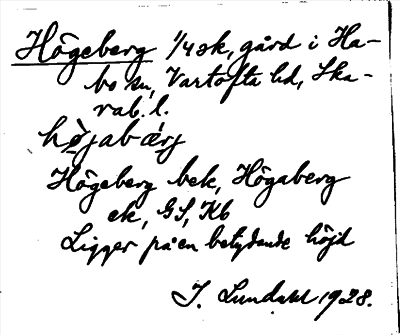 Högeberg 1/4 sk, gård i Ha-
bo sn, Vartofta hd, Ska-
rab. l.
højabærj
Högeberg bek, Högaberg
ek, GS, Kb
Ligger på en betydande höjd
J. Lundahl 1928.